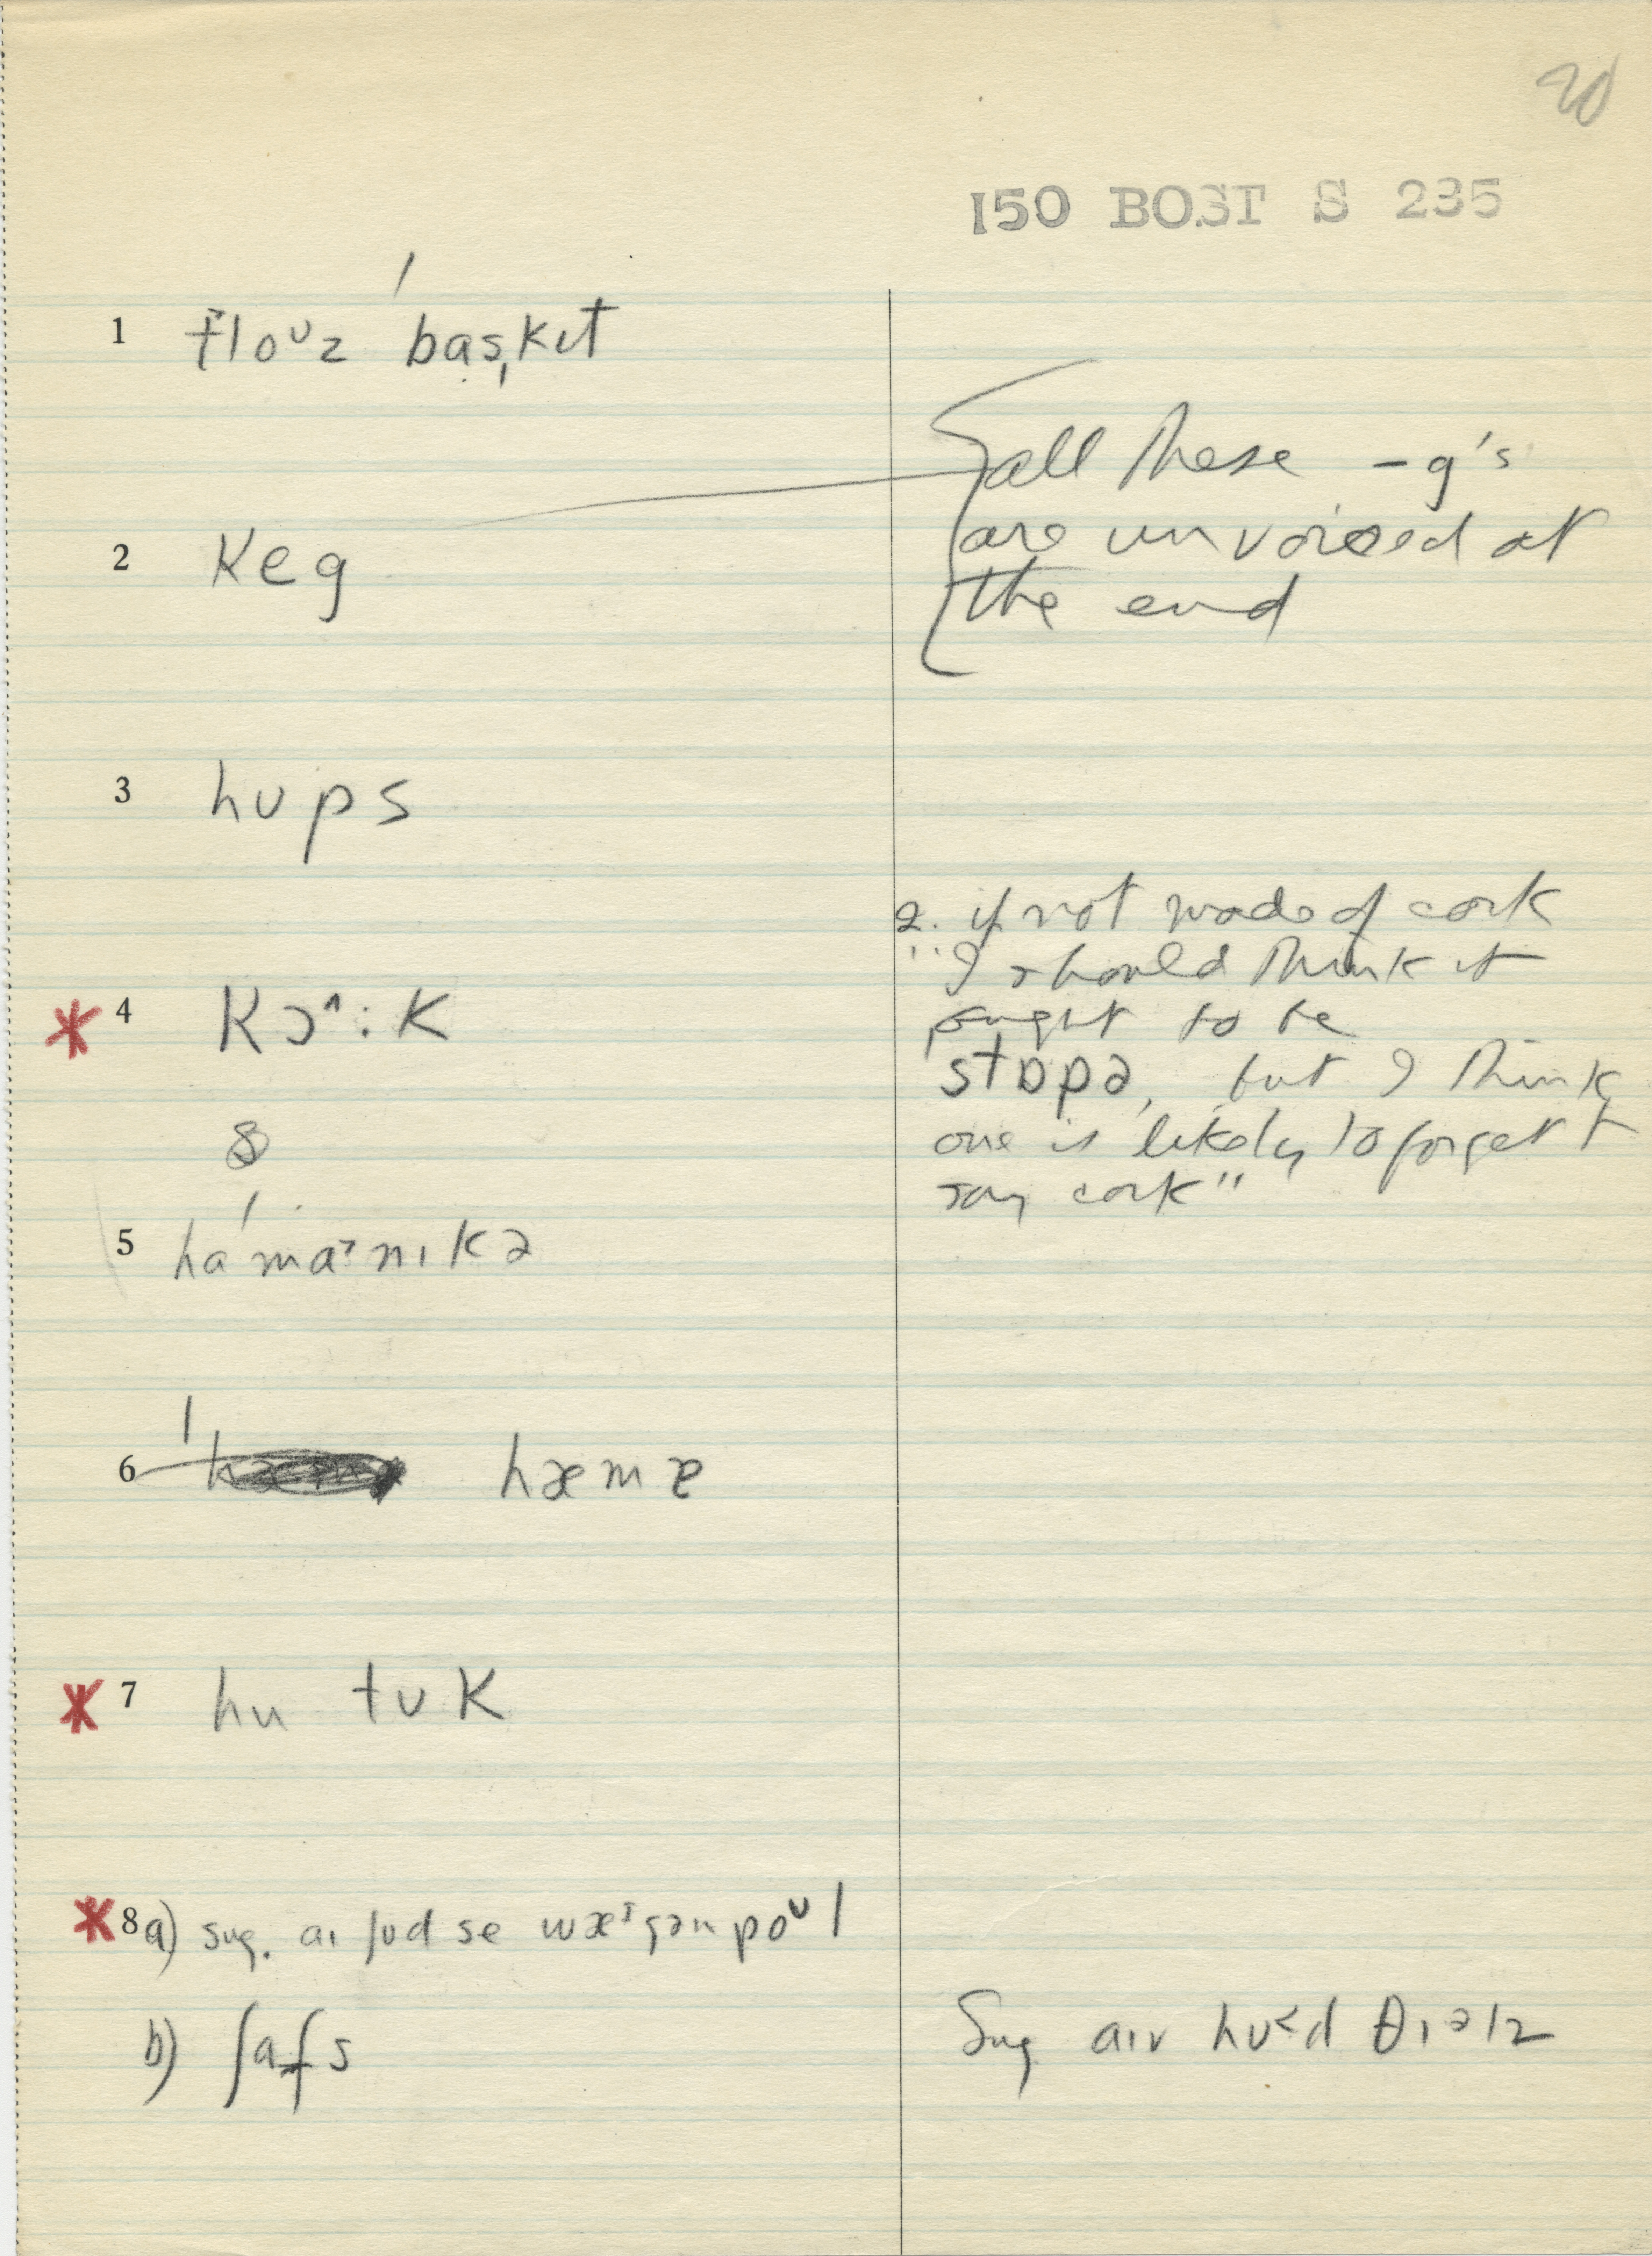 20
150 BOST S 235
1 kloᶷz baskɪt
all these -g's
are unvoiced at
the end
2 keg
3 hʊps
2. if not made of cork
"I should think it
ought to be
stɒpə, but I think
one is likely to forget &
say cork"
4 kɔ^:k
&
5 ha ma˃nɪkə
6 hæmɐ
7 hu tʊk
8 a) sug. aɪ ʃʊd se wæ gən poᶷl
b) ʃafs
Sug aɪv hɜ˂d θɪəlz